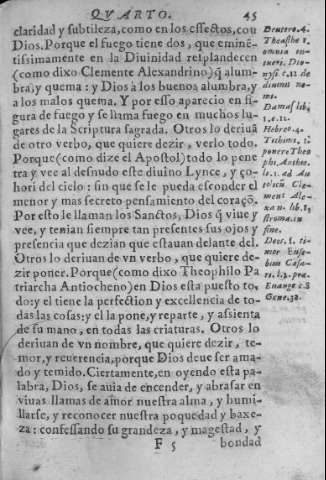 QVARTO. 45
claridad y subtileza, como en los effectos, con
Dios. Porque el fuego tiene dos, que eminē-
tissimamente en la Diuinidad resplandecen
(como dixo Clemente Alexandrino) q̃ alum-
bra, y quema: y Dios à los buenos alumbra, y
a los malos quema. Y por esso aparecio en fi-
gura de fuego y se llama fuego en muchos lu-
gares de la Scriptura sagrada. Otros lo deriuã
de otro verbo, que quiere dezir, verlo todo.
Porque (como dize el Apostol) todo lo pene
tra y vee al desnudo este diuino Lynce, y
hori del cielo: sin que se le pueda esconder el
menor y mas secreto pensamiento del coraçõ.
Por esto le llaman los Sanctos, Dios q̃ viue y
vee, y tenian siempre tan presentes sus ojos y
presencia que dezian que estauan delante del.
Otros lo deriuan de vn verbo, que quiere de-
zir poner. Porque (como dixo Theophilo Pa
triarcha Antiocheno) en Dios esta puesto to-
do: y el tiene la perfection y excellencia de to-
das las cosas: y el la pone, y reparte, y assienta
de su mano, en todas las criaturas. Otros lo
deriuan de vn nombre, que quiere dezir, te-
mor, y reuerencia, porque Dios deue ser ama-
do y temido. Ciertamente, en oyendo esta pa-
labra, Dios, se auia de encender, y abrasar en
viuas llamas de amor nuestra alma, y humi-
llarse, y reconocer nuestra poquedad y baxe-
za: confessando su grandeza, y magestad, y
F 5 bondad
Deutero. 4.
Theasthe
omnia
intueri. Dio-
nysi c. 12. de
diuinis no-
mi.
Damas. lib.
1. c. 12.
Hebreo. 4.
ponere Theo
phi. Antho.
li. 1. ad Au
Cle-
mens Ale-
xan. lib.
stroma. in
fine.
Deos. i. ti-
mor Euse-
bius Cesa-
re. li. 3. præ-
Euange. c. 8
Gene. 32.